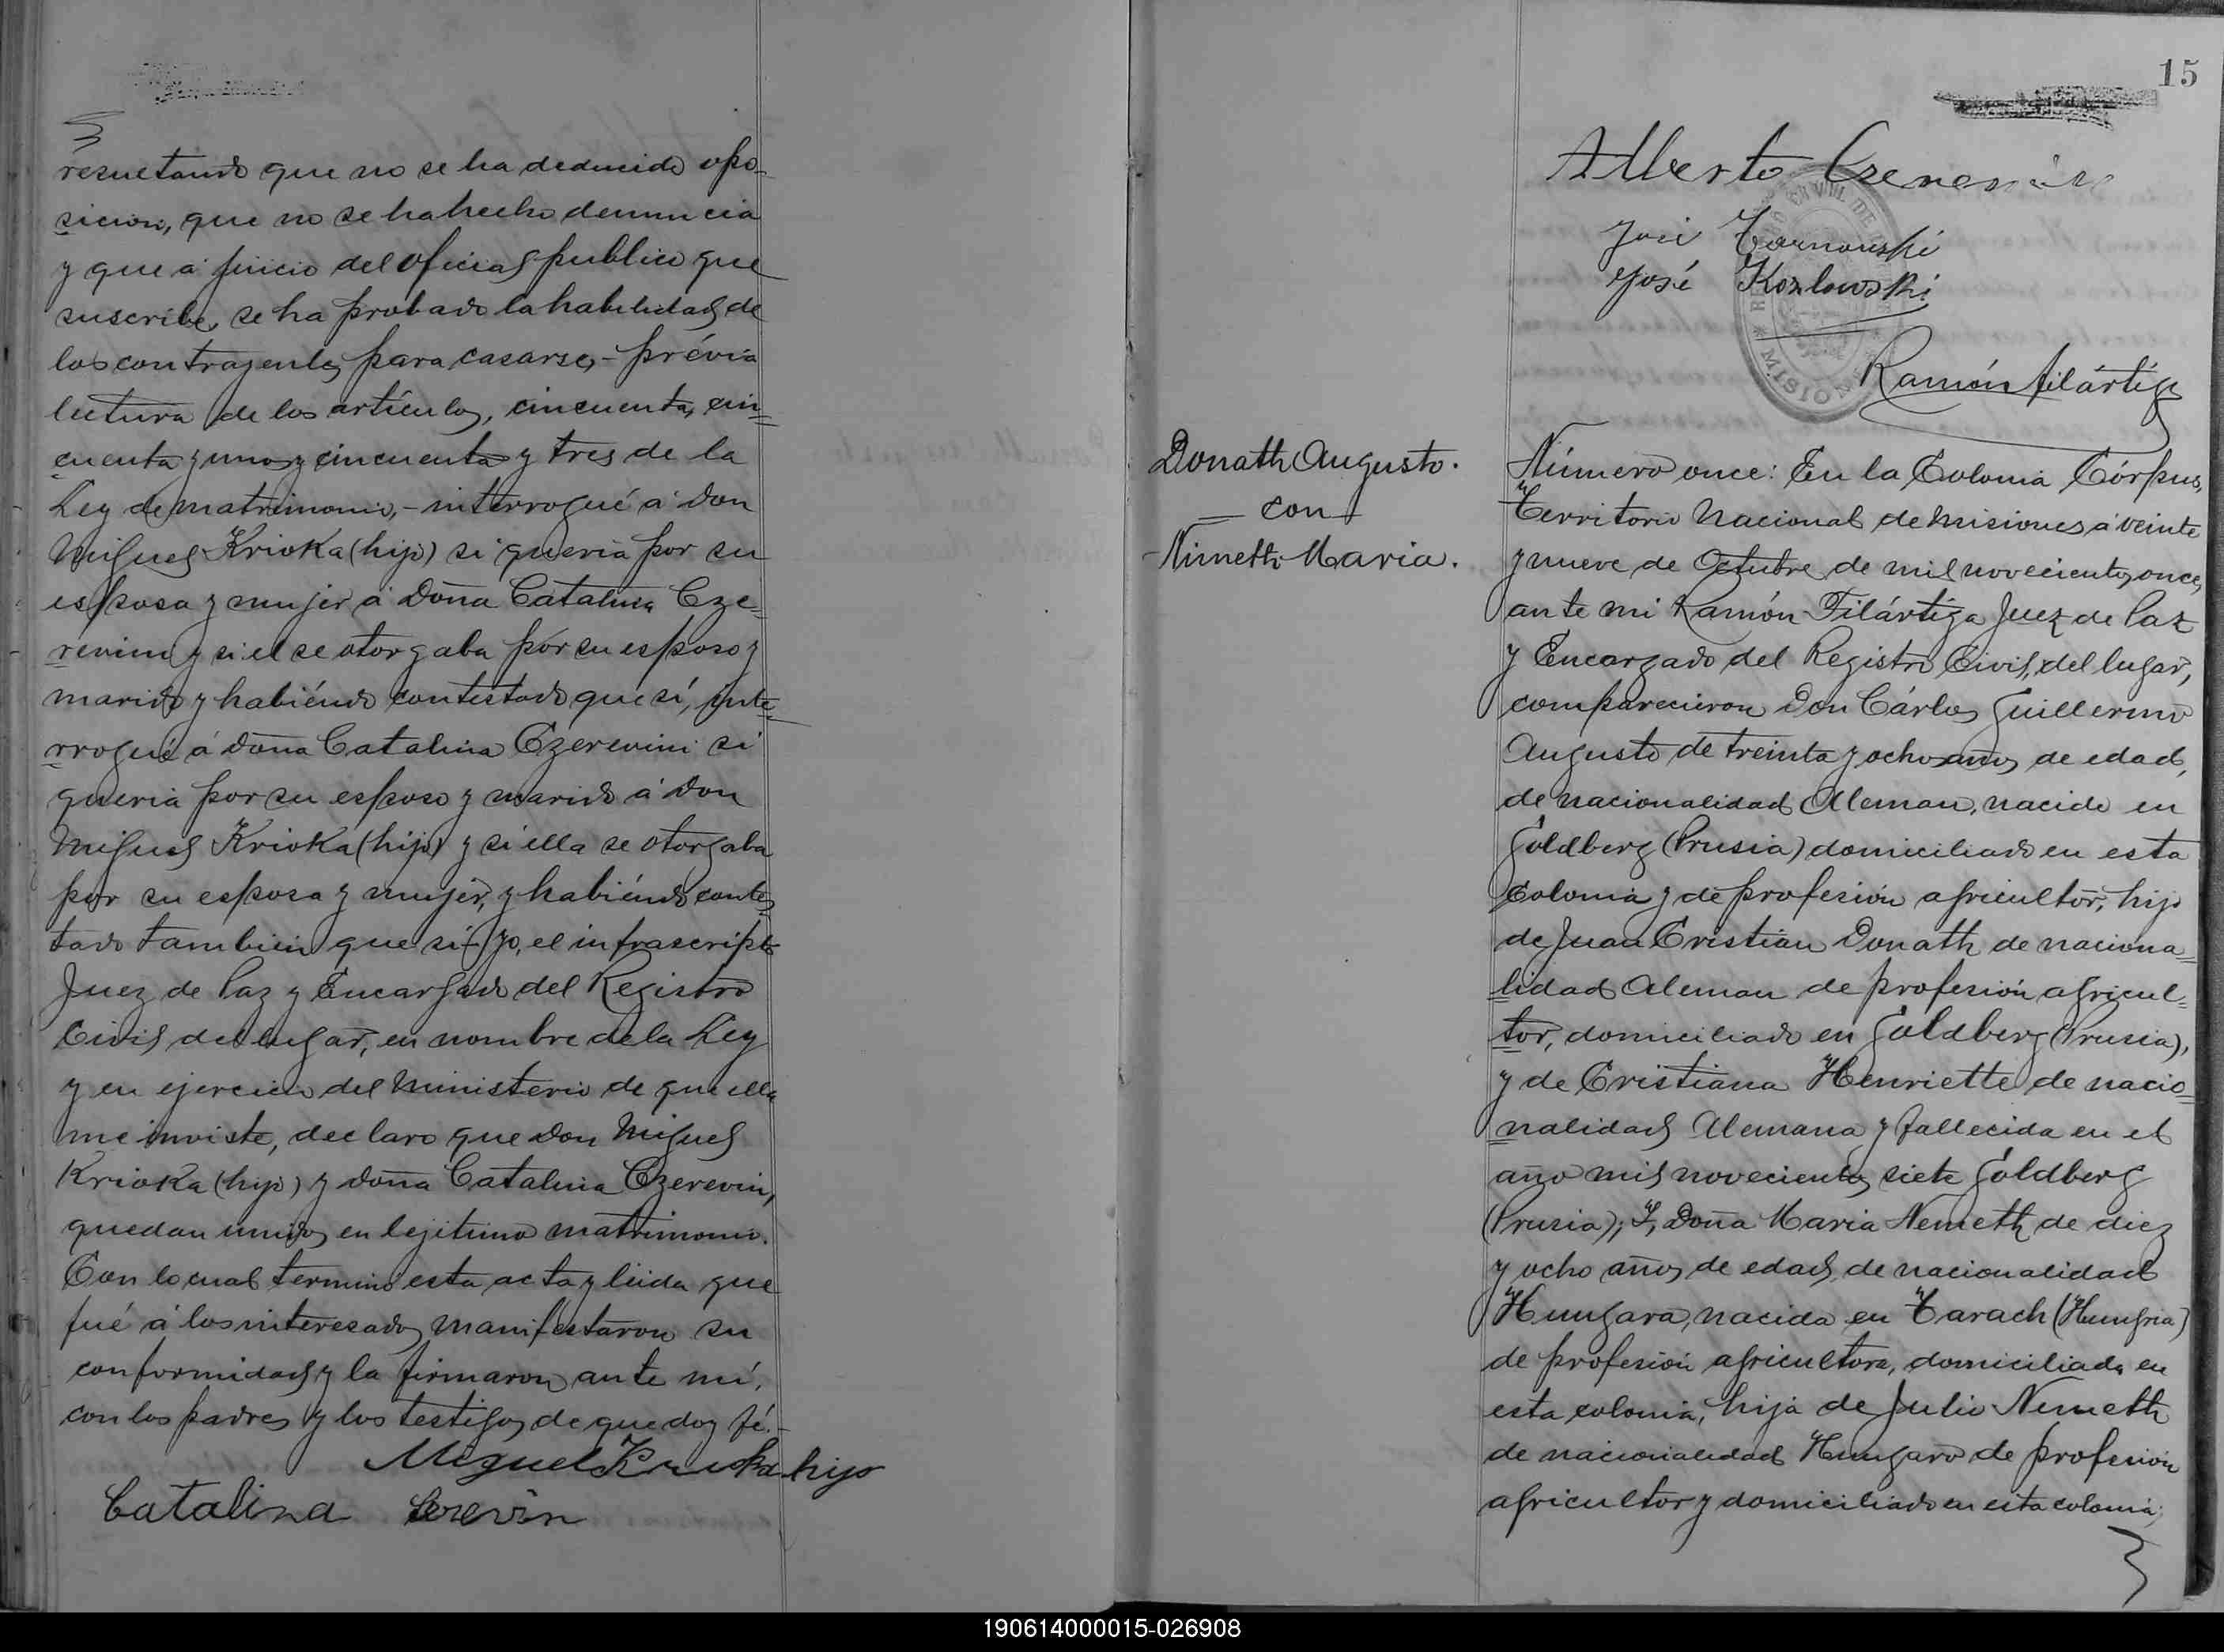 resultando que no se ha deducido opo-
sicion, que no se ha hecho denuncia
y que á juicio del oficial publico que
suscribe, se ha probado la habilidad de
los contrayentes para casarse, - prévia
lectura de los artículos, cincuenta, cin-
cuenta y uno y cincuenta y tres de la
Ley de matrimonio, - interrogué á Don
Miguel Krioka (hijo) si queria por su
esposa y mujer á Doña Catalina Cze-
revin y si el se otorgaba por su esposo y
marido y habiéndo contestado que sí, inte-
rrogué á doña Catalina Czerevin si
queria por su esposo y marido á Don
Miguel Krioka (hijo) y si ella se otorgaba
por su esposa y mujer, y habiéndo contes-
tado tambien que sí - yo, el infrascripto
Juez de Paz y Encargado del Registro
Civil del lugar, en nombre de la Ley
y en ejercicio del Ministerio de que ella
me inviste, declaro que Don Miguel
Krioka (hijo) y doña Catalina Czerevin,
quedan unidos en lejitimo matrimonio.
Con lo cual terminó esta acta y leida que
fué á los interesados, manifestaron su
conformidad y la firmaron ante mí,
con los padres y los testigos de que doy fé.-
Miguel Krioka hijo
Catalina
15
Alberto
José Tarnowski
José Kozlowski
MISIONES
Ramón Filártiga
Donath Augusto.
con
Nimeth Maria.
Número once: En la Colonia Córpus,
Territorio Nacional de Misiones á veinte
y nueve de Octubre de mil novecientos once,
ante mi Ramón Filártiga Juez de Paz
y Encargado del Registro Civil, del lugar,
comparecieron Don Cárlos Guillermo
Augusto de treinta y ocho años de edad,
de nacionalidad Aleman, nacido en
Goldberg (Prusia) domiciliado en esta
Colonia y de profesión agricultor, hijo
de Juan Cristian Donath de naciona-
lidad Aleman de profesión agricul-
tor, domiciliado en Goldberg (Prusia),
y de Cristiana Henriette de nacio-
nalidad Alemana y fallecida en el
año mil novecientos siete Goldberg
(Prusia); Y, Doña Maria Nemeth de diez
y ocho años de edad, de nacionalidad
Hungara, nacida en Tarach (Hungria)
de profesión agricultora, domiciliada en
esta colonia, hija de Julio Nemeth
de nacionalidad Hungaro de profesión
agricultor y domiciliado en esta colonia,
190614000015-026908